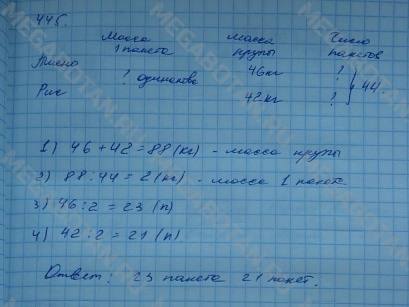 445.
Масса 1 пакета
Масса крупы
Число пакетов
Пшено ? одинаково 46кг ?
Рис 42кг ? } 44
1) 46 + 42 = 88 (кг) - масса крупы
2) 88 : 44 = 2 (кг) - масса 1 пакет.
3) 46 : 2 = 23 (п)
4) 42 : 2 = 21 (п)
Ответ: 23 пакета 21 пакет.